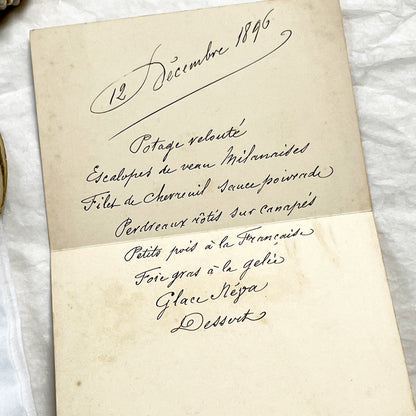 12 Décembre 1896
Potage velouté
Escalopes de veau Milanaises
Filet de Chevreuil sauce poivrade
Perdreaux rôtis sur canapés
Petits pois à la Française
Foie gras à la gelée
Glace Néva
Dessert